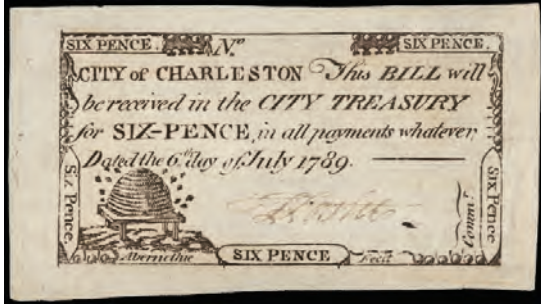 SIX PENCE. No SIX PENCE.
CITY of CHARLESTON This BILL will
be received in the CITY TREASURY
for SIX-PENCE, in all payments whatever;
Dated the 6th day of July 1789.
Six Pence.
Six Pence
Comm.r
Abernethie SIX PENCE Fecit